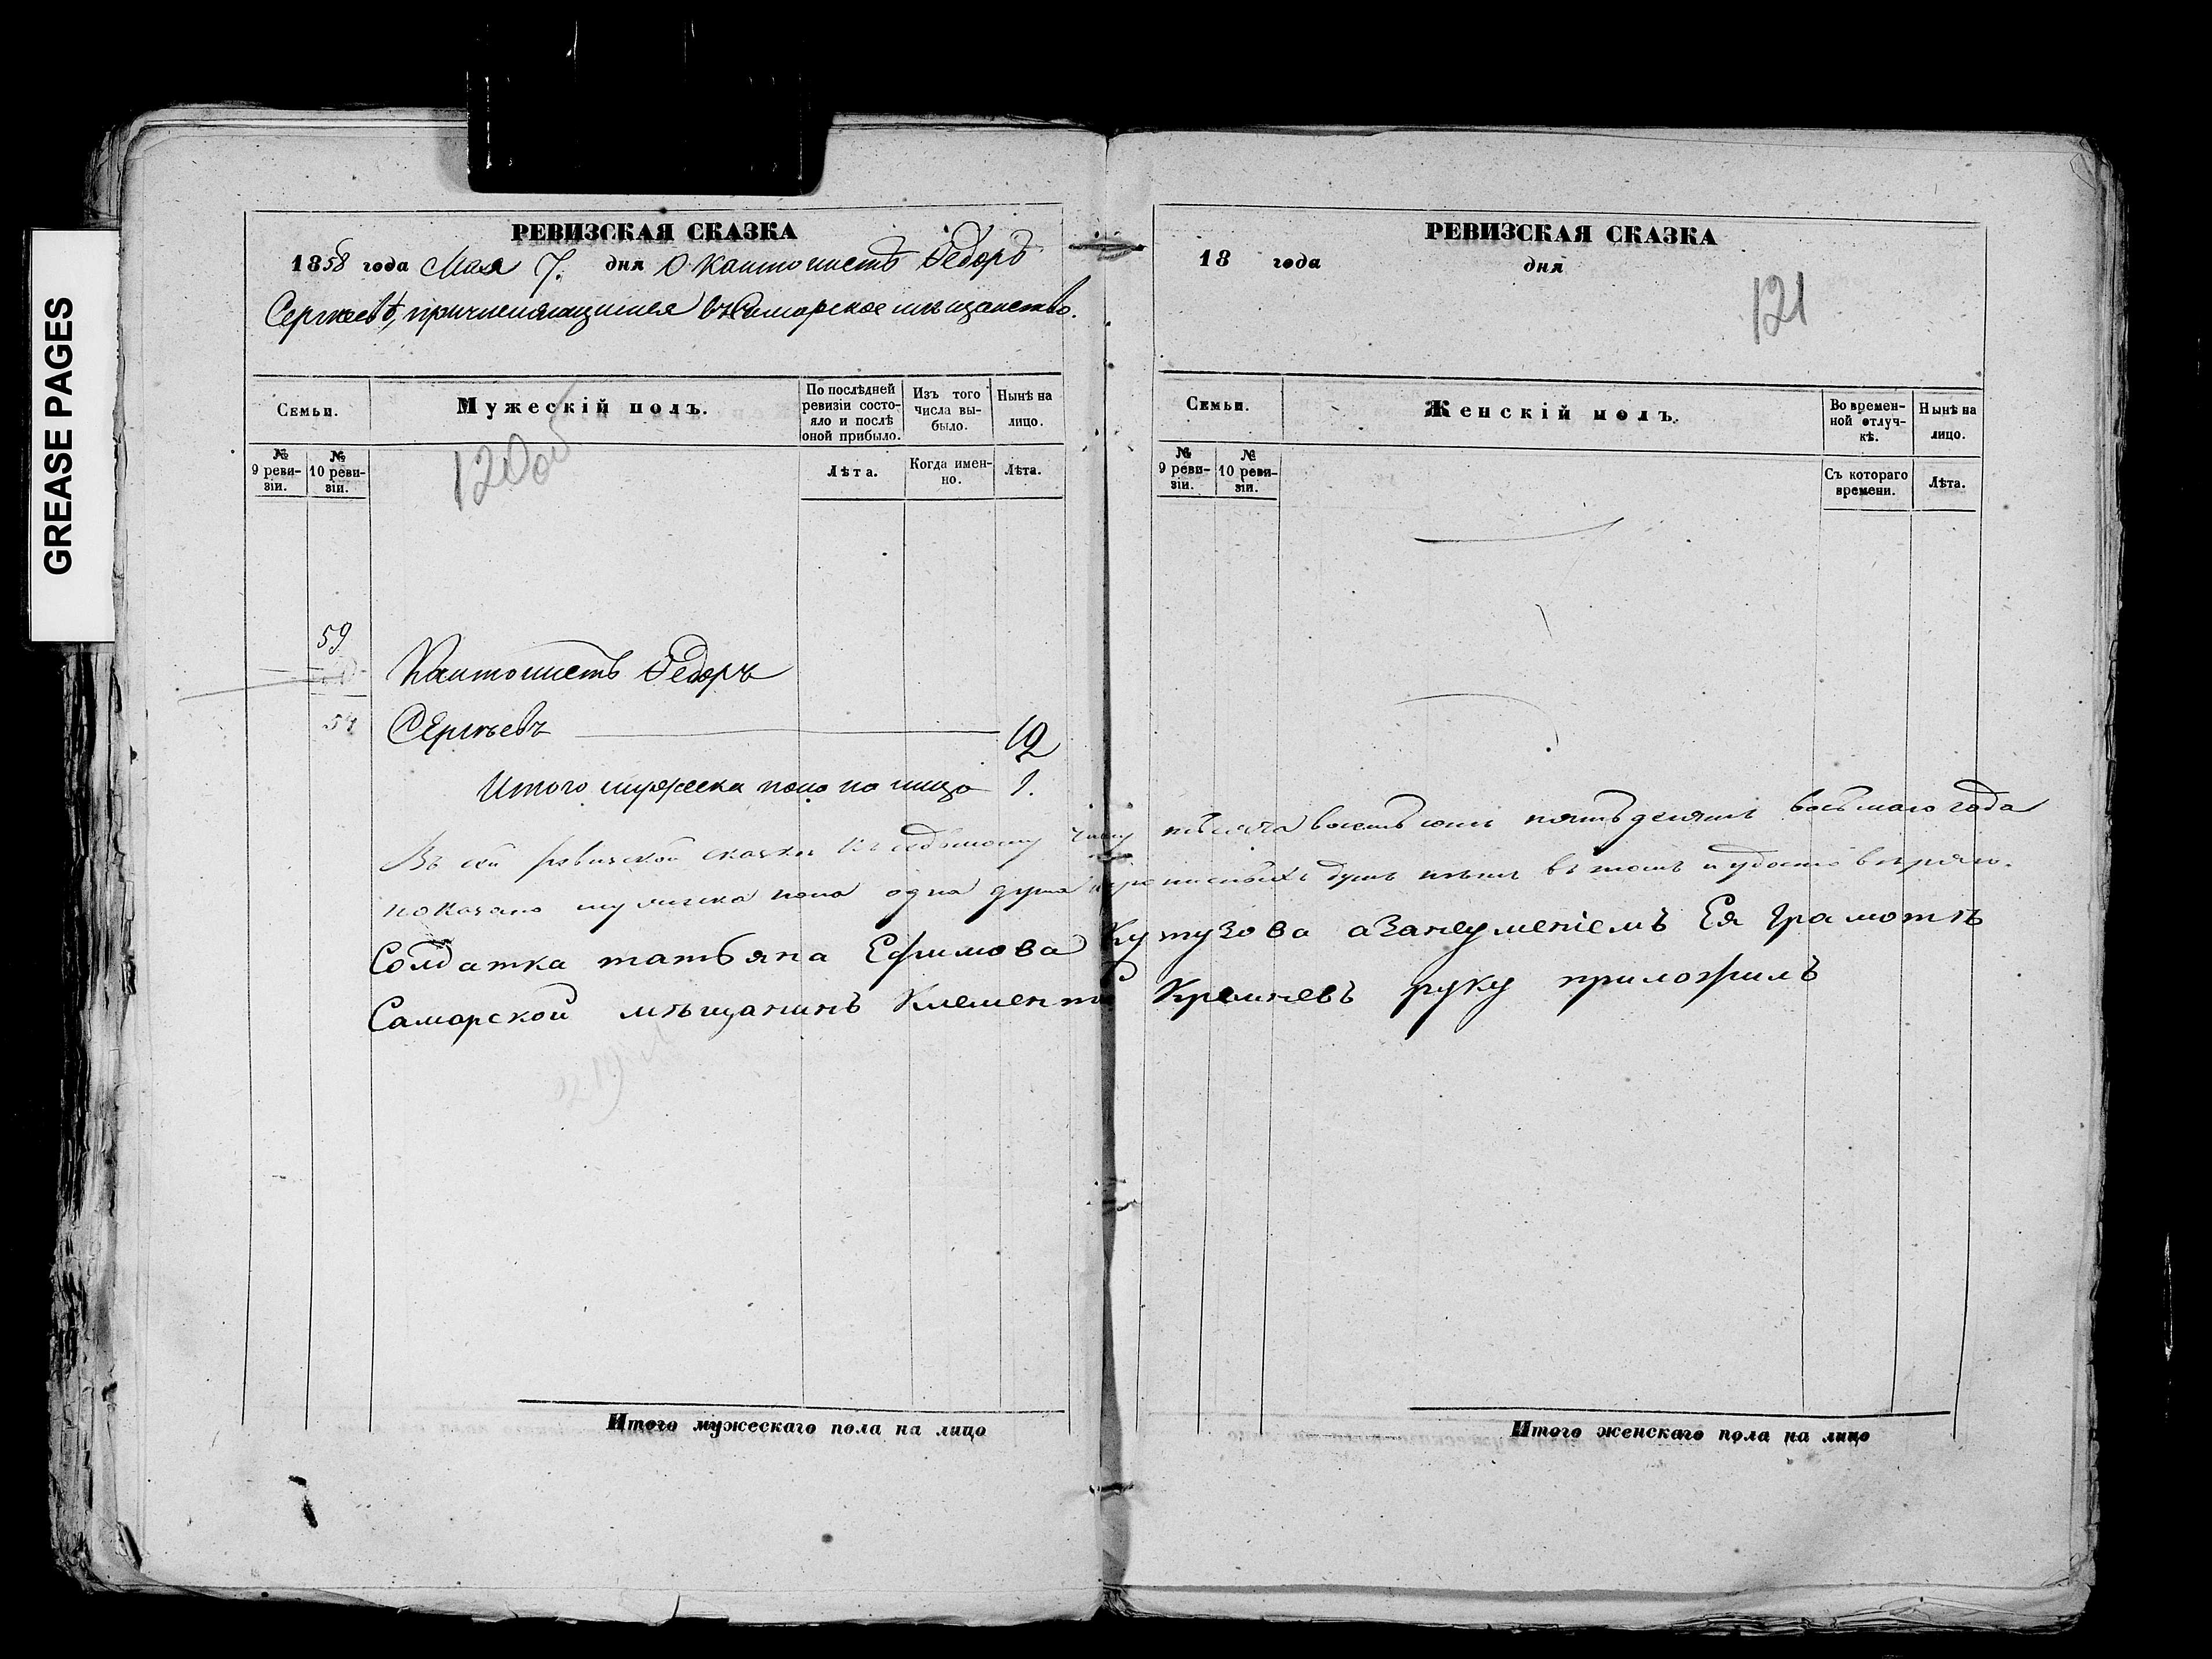 GREASE PAGES
РЕВИЗСКАЯ СКАЗКА
1858 года Мая 7. дня О Кантонистѣ Ѳедорѣ
Сергѣевѣ, причисляющимся въ Самарское мѣщанство.
Семьи.
Мужескій полъ.
По послѣдней ревизіи состояло и послѣ оной прибыло.
Изъ того числа выбыло.
Нынѣ на лицо.
№ 9 ревизіи.
№ 10 ревизіи.
120об
Лѣта.
Когда именно.
Лѣта.
59
Кантонистъ Ѳедоръ
54 Сергѣевъ 12
Итого мужеска пола на лицо 1.
РЕВИЗСКАЯ СКАЗКА
18 года дня
121
Семьи.
Женскій полъ.
Во временной отлучкѣ.
Нынѣ на лицо.
№ 9 ревизіи.
№ 10 ревизіи.
Съ котораго времени.
Лѣта.
Въ сей ревизской сказкѣ къ седьмому числу тысяча восемь сотъ пятьдесятъ восьмаго года
показано мужеска пола одна душа душъ нѣтъ въ томъ и удостовѣряю.
Солдатка татьяна Ефимова Кутузова азанеуменіемъ Ея Грамотѣ
Саморской мѣщанинъ Клементѣ Кремневъ руку приложилъ
Итого мужескаго пола на лицо
Итого женскаго пола на лицо